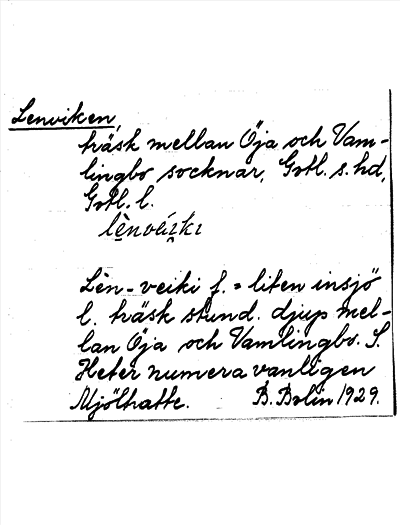 Lenviken,
träsk mellan Öja och Vam-
lingbo socknar, Gotl. s. hd,
Gotl. l.
Lèn-veiki f. = liten insjö
l. träsk stund. djup mel-
lan Öja och Vamlingbo. S.
Heter numera vanligen
Mjölhatte. B. Bolin 1929.